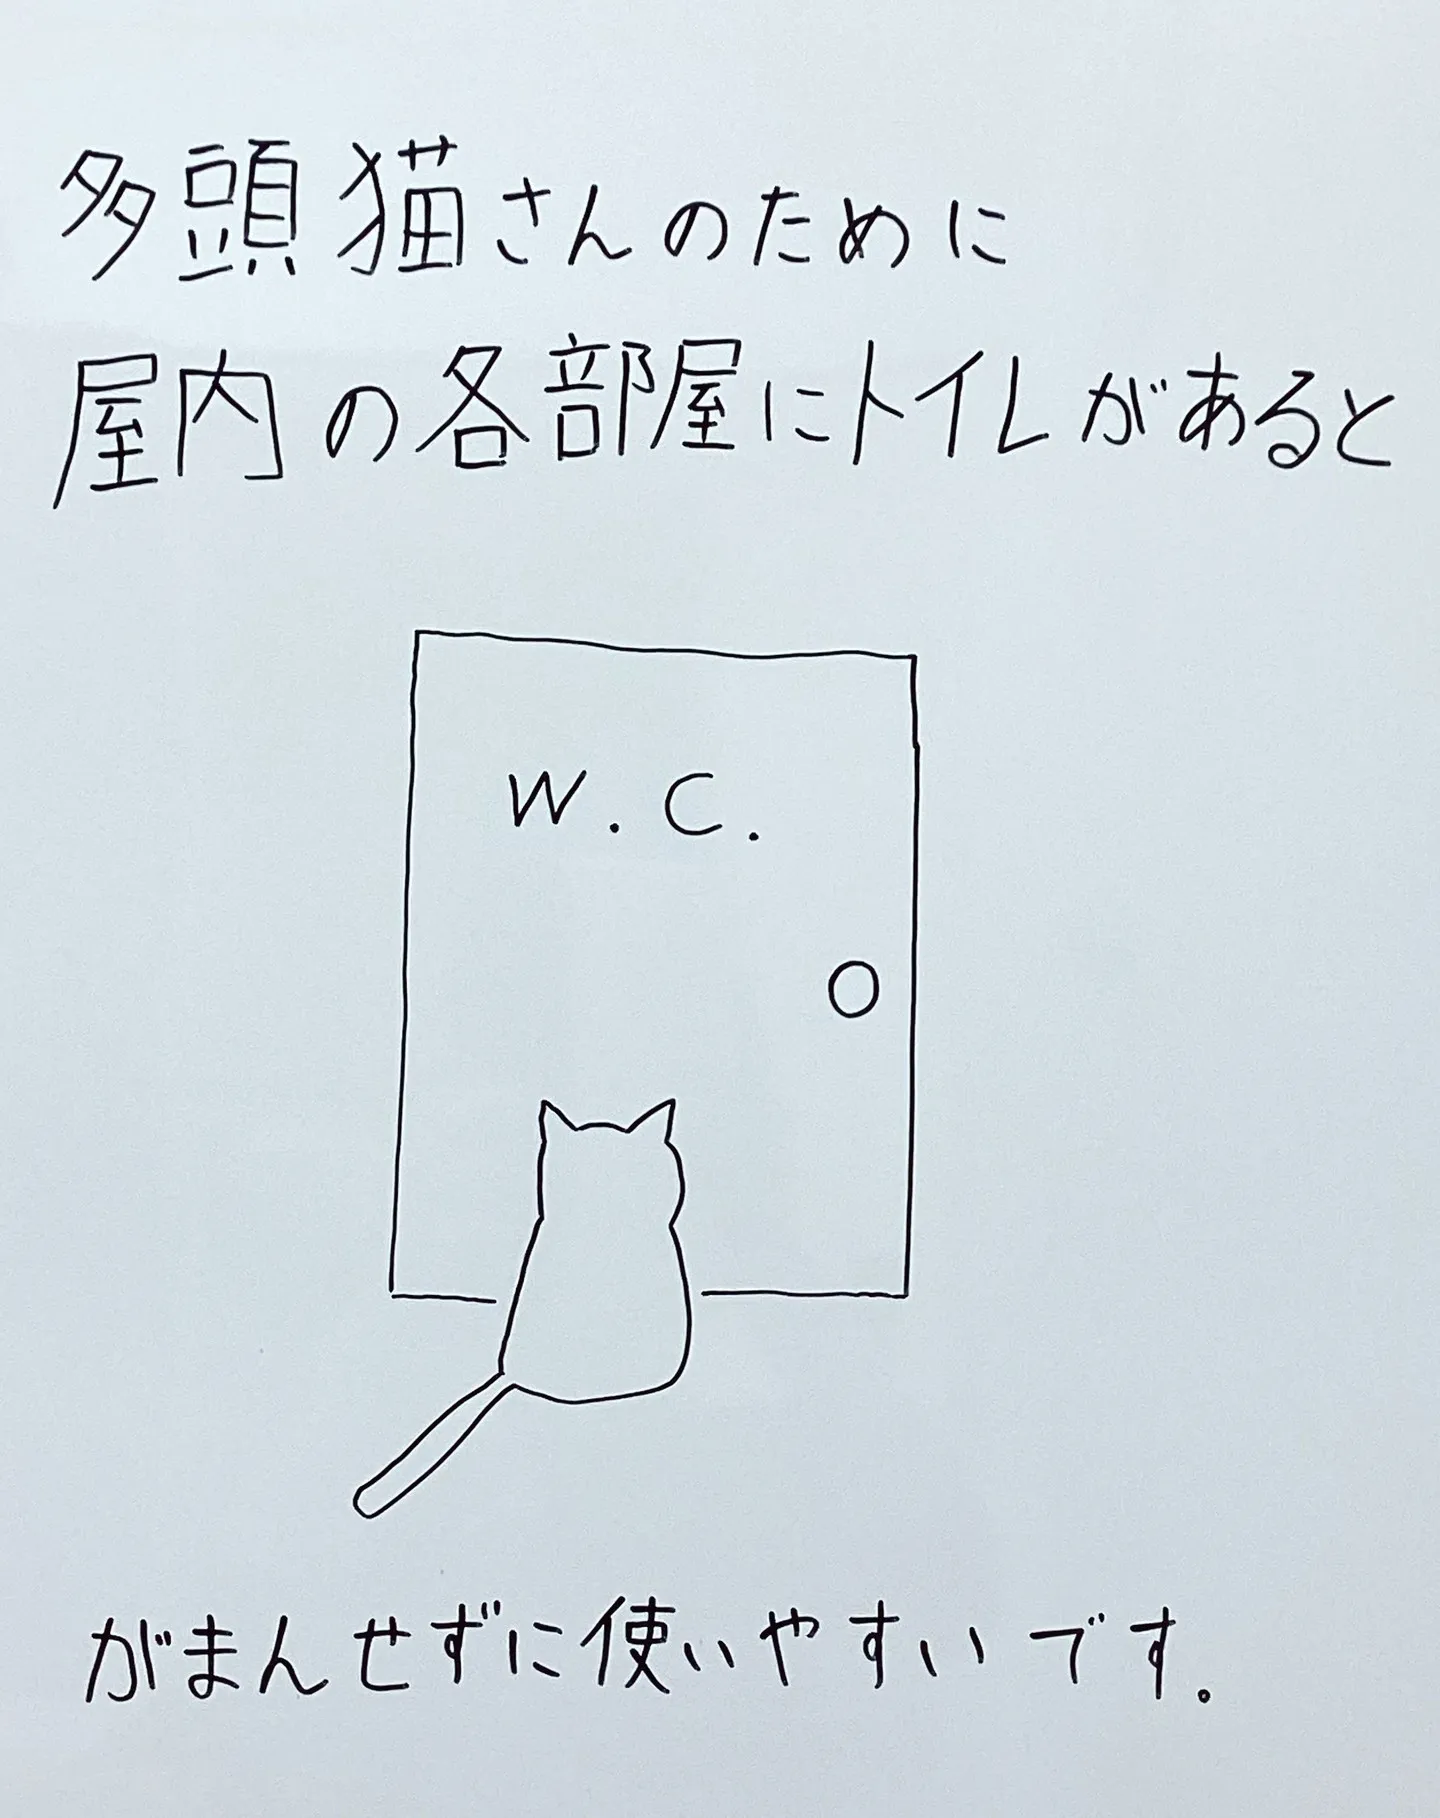 多頭猫さんのために
屋内の各部屋にトイレがあると
W.C.
がまんせずに使いやすいです。